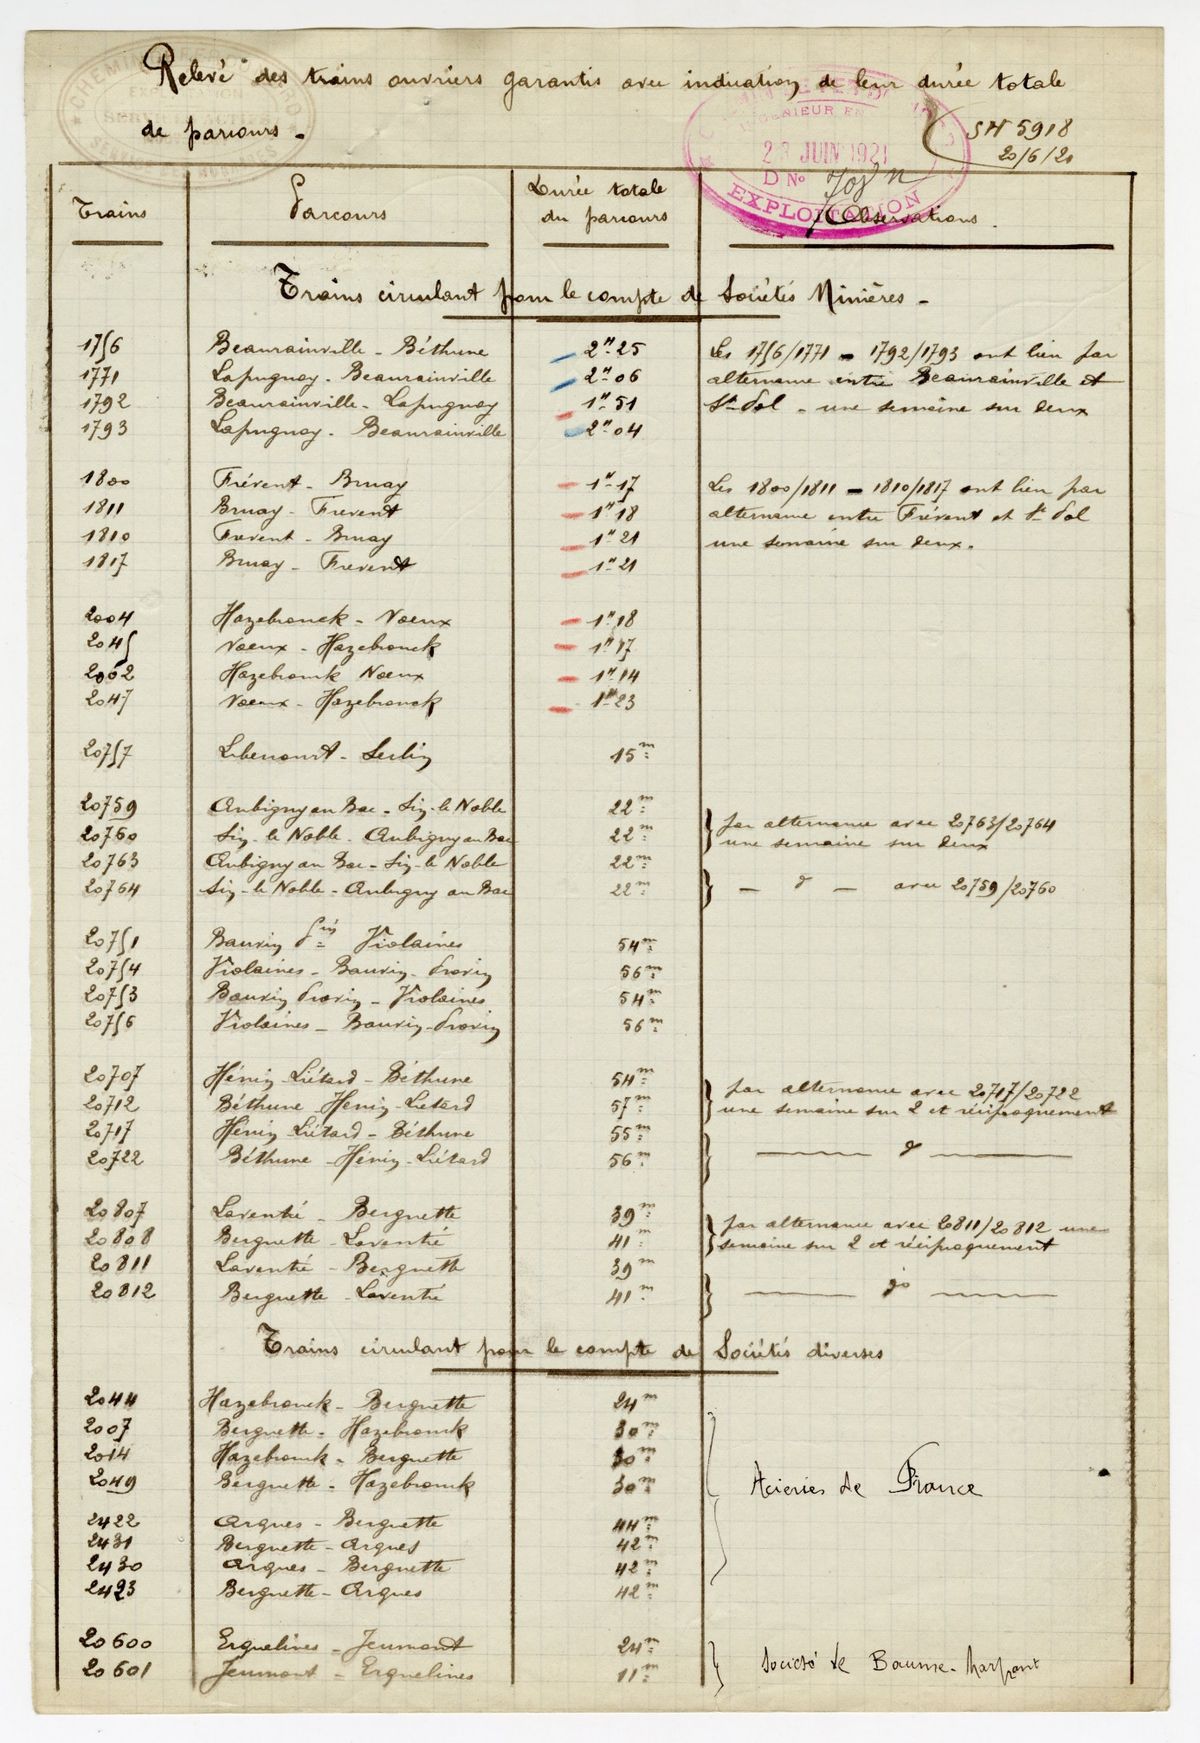 Relevé des trains ouvriers garantis avec indication de leur durée totale
de parcours.
SH 5918
20/6/21
INGENIEUR EN
23 JUIN 1921
D No
EXPLOITATION
Trains Parcours Durée totale du parcours Observations.
Trains circulant pour le compte de Sociétés Minières -
1756 Beaurainville - Béthune 2h 25 Les 1756/1771 - 1792/1793 ont lieu par
1771 Lapugnoy - Beaurainville 2h 06 alternance entre Beaurainville et
1792 Beaurainville - Lapugnoy 1h 51 St Pol - une semaine sur deux
1793 Lapugnoy - Beaurainville 2h 04
1800 Frévent - Bruay 1h 17 Les 1800/1811 - 1810/1817 ont lieu par
1811 Bruay - Frevent 1h 18 alternance entre Frévent et St Pol
1810 Frevent - Bruay 1h 21 une semaine sur deux.
1817 Bruay - Frevent 1h 21
2004 Hazebrouck - Noeux 1h 18
2045 Noeux - Hazebrouck 1h 17
2062 Hazebrouck Noeux 1h 14
2047 Noeux - Hazebrouck 1h 23
20757 Libercourt - Seclin 15m
20759 Aubigny au Bac - Sin-le Noble 22m
20760 Sin-le Noble - Aubigny au Bac 22m par alternance avec 20763/20764
une semaine sur deux
20763 Aubigny au Bac - Sin-le Noble 22m
20764 Sin-le Noble - Aubigny au Bac 22m — do — avec 20759/20760
20751 Bauvin Pin Violaines 54m
20754 Violaines - Bauvin - Provin 56m
20753 Bauvin Provin - Violaines 54m
20756 Violaines - Bauvin - Provin 56m
20707 Hénin-Liétard - Béthune 54m par alternance avec 20717/20722
20712 Béthune Henin-Lietard 57m une semaine sur 2 et réciproquement
20717 Hénin Liétard - Béthune 55m
20722 Béthune - Hénin-Liétard 56m — do —
20807 Laventié - Berguette 39m par alternance avec 20811/20812 une
20808 Berguette - Laventié 41m semaine sur 2 et réciproquement
20811 Laventié - Berguette 39m
20812 Berguette - Laventié 41m — do —
Trains circulant pour le compte de Sociétés diverses
2044 Hazebrouck - Berguette 24m
2007 Berguette - Hazebrouck 30m
2014 Hazebrouck - Berguette 30m
2049 Berguette - Hazebrouck 30m Aciéries de France
2422 Arques - Berguette 44m
2431 Berguette - Arques 42m
2430 Arques - Berguette 42m
2423 Berguette - Arques 42m
20600 Erquelines - Jeumont 24m
20601 Jeumont - Erquelines 11m Société de Baume-Marpent